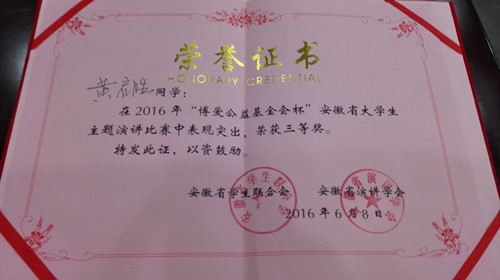 荣誉证书
HONORARY CREDENTIAL
同学：
在2016年“博爱公益基金会杯”安徽省大学生
主题演讲比赛中表现突出，荣获三等奖。
特发此证，以资鼓励。
安徽省学生联合会 安徽省演讲学会
2016年6月8日